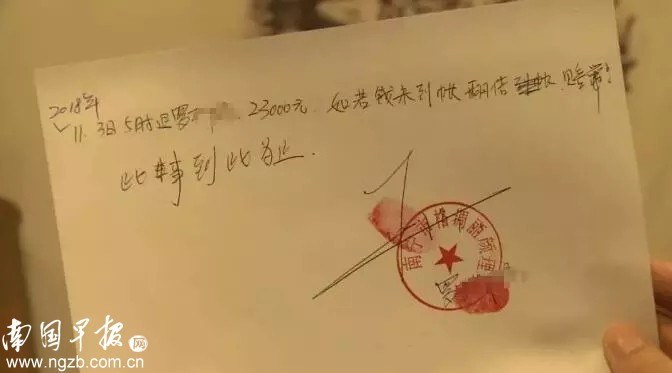 2018年
11.3日5时退罗 23000元.如若钱未到帐翻倍 赔偿!
此事到此为止.
罗
南国早报网
www.ngzb.com.cn